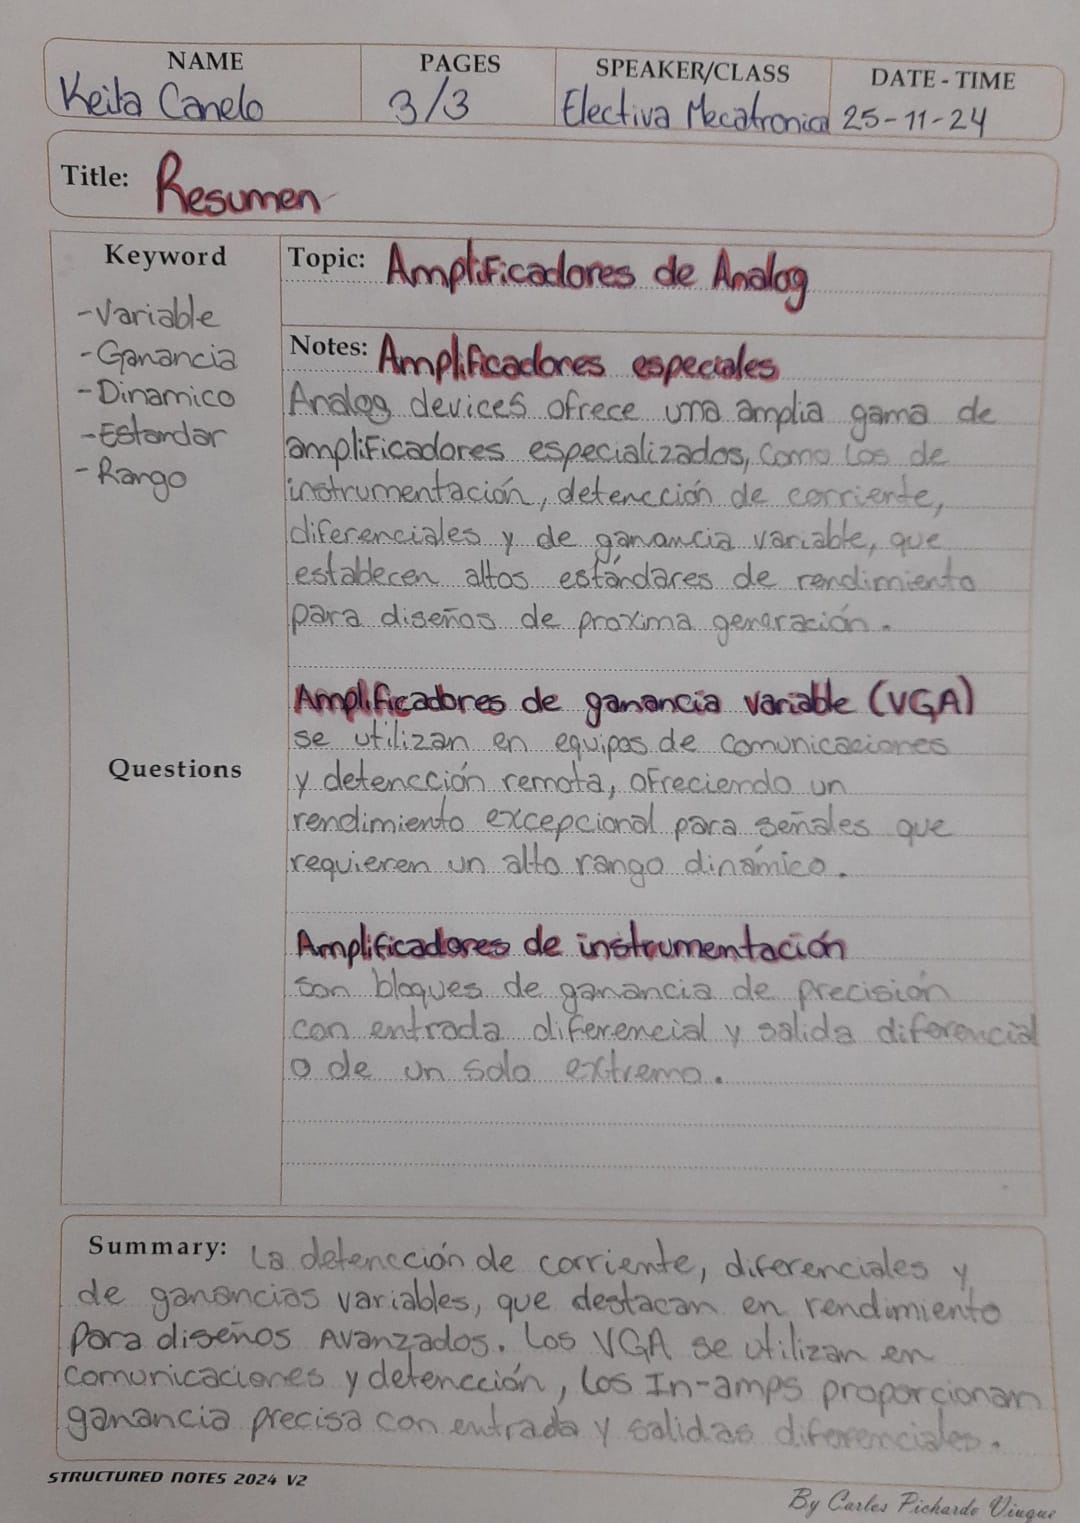 NAME
Keila Canelo
PAGES
3/3
SPEAKER/CLASS
Electiva Mecatronica
DATE - TIME
25-11-24
Title: Resumen
Keyword
-Variable
-Ganancia
-Dinamico
-Estandar
-Rango
Questions
Topic: Amplificadores de Analog
Notes: Amplificadores especiales
Analog devices ofrece una amplia gama de
amplificadores especializados, como los de
instrumentación, detencción de corriente,
diferenciales y de ganancia variable, que
establecen altos estándares de rendimiento
para diseños de proxima generación.
Amplificadores de ganancia variable (VGA)
se utilizan en equipos de comunicaciones
y detencción remota, ofreciendo un
rendimiento excepcional para señales que
requieren un alto rango dinámico.
Amplificadores de instrumentación
son bloques de ganancia de precisión
con entrada diferencial y salida diferencial
o de un solo extremo.
Summary: La detencción de corriente, diferenciales y
de ganancias variables, que destacan en rendimiento
para diseños Avanzados. Los VGA se utilizan en
comunicaciones y detencción, los In-amps proporcionan
ganancia precisa con entrada y salidas diferenciales.
STRUCTURED NOTES 2024 V2
By Carlos Pichardo Viuque